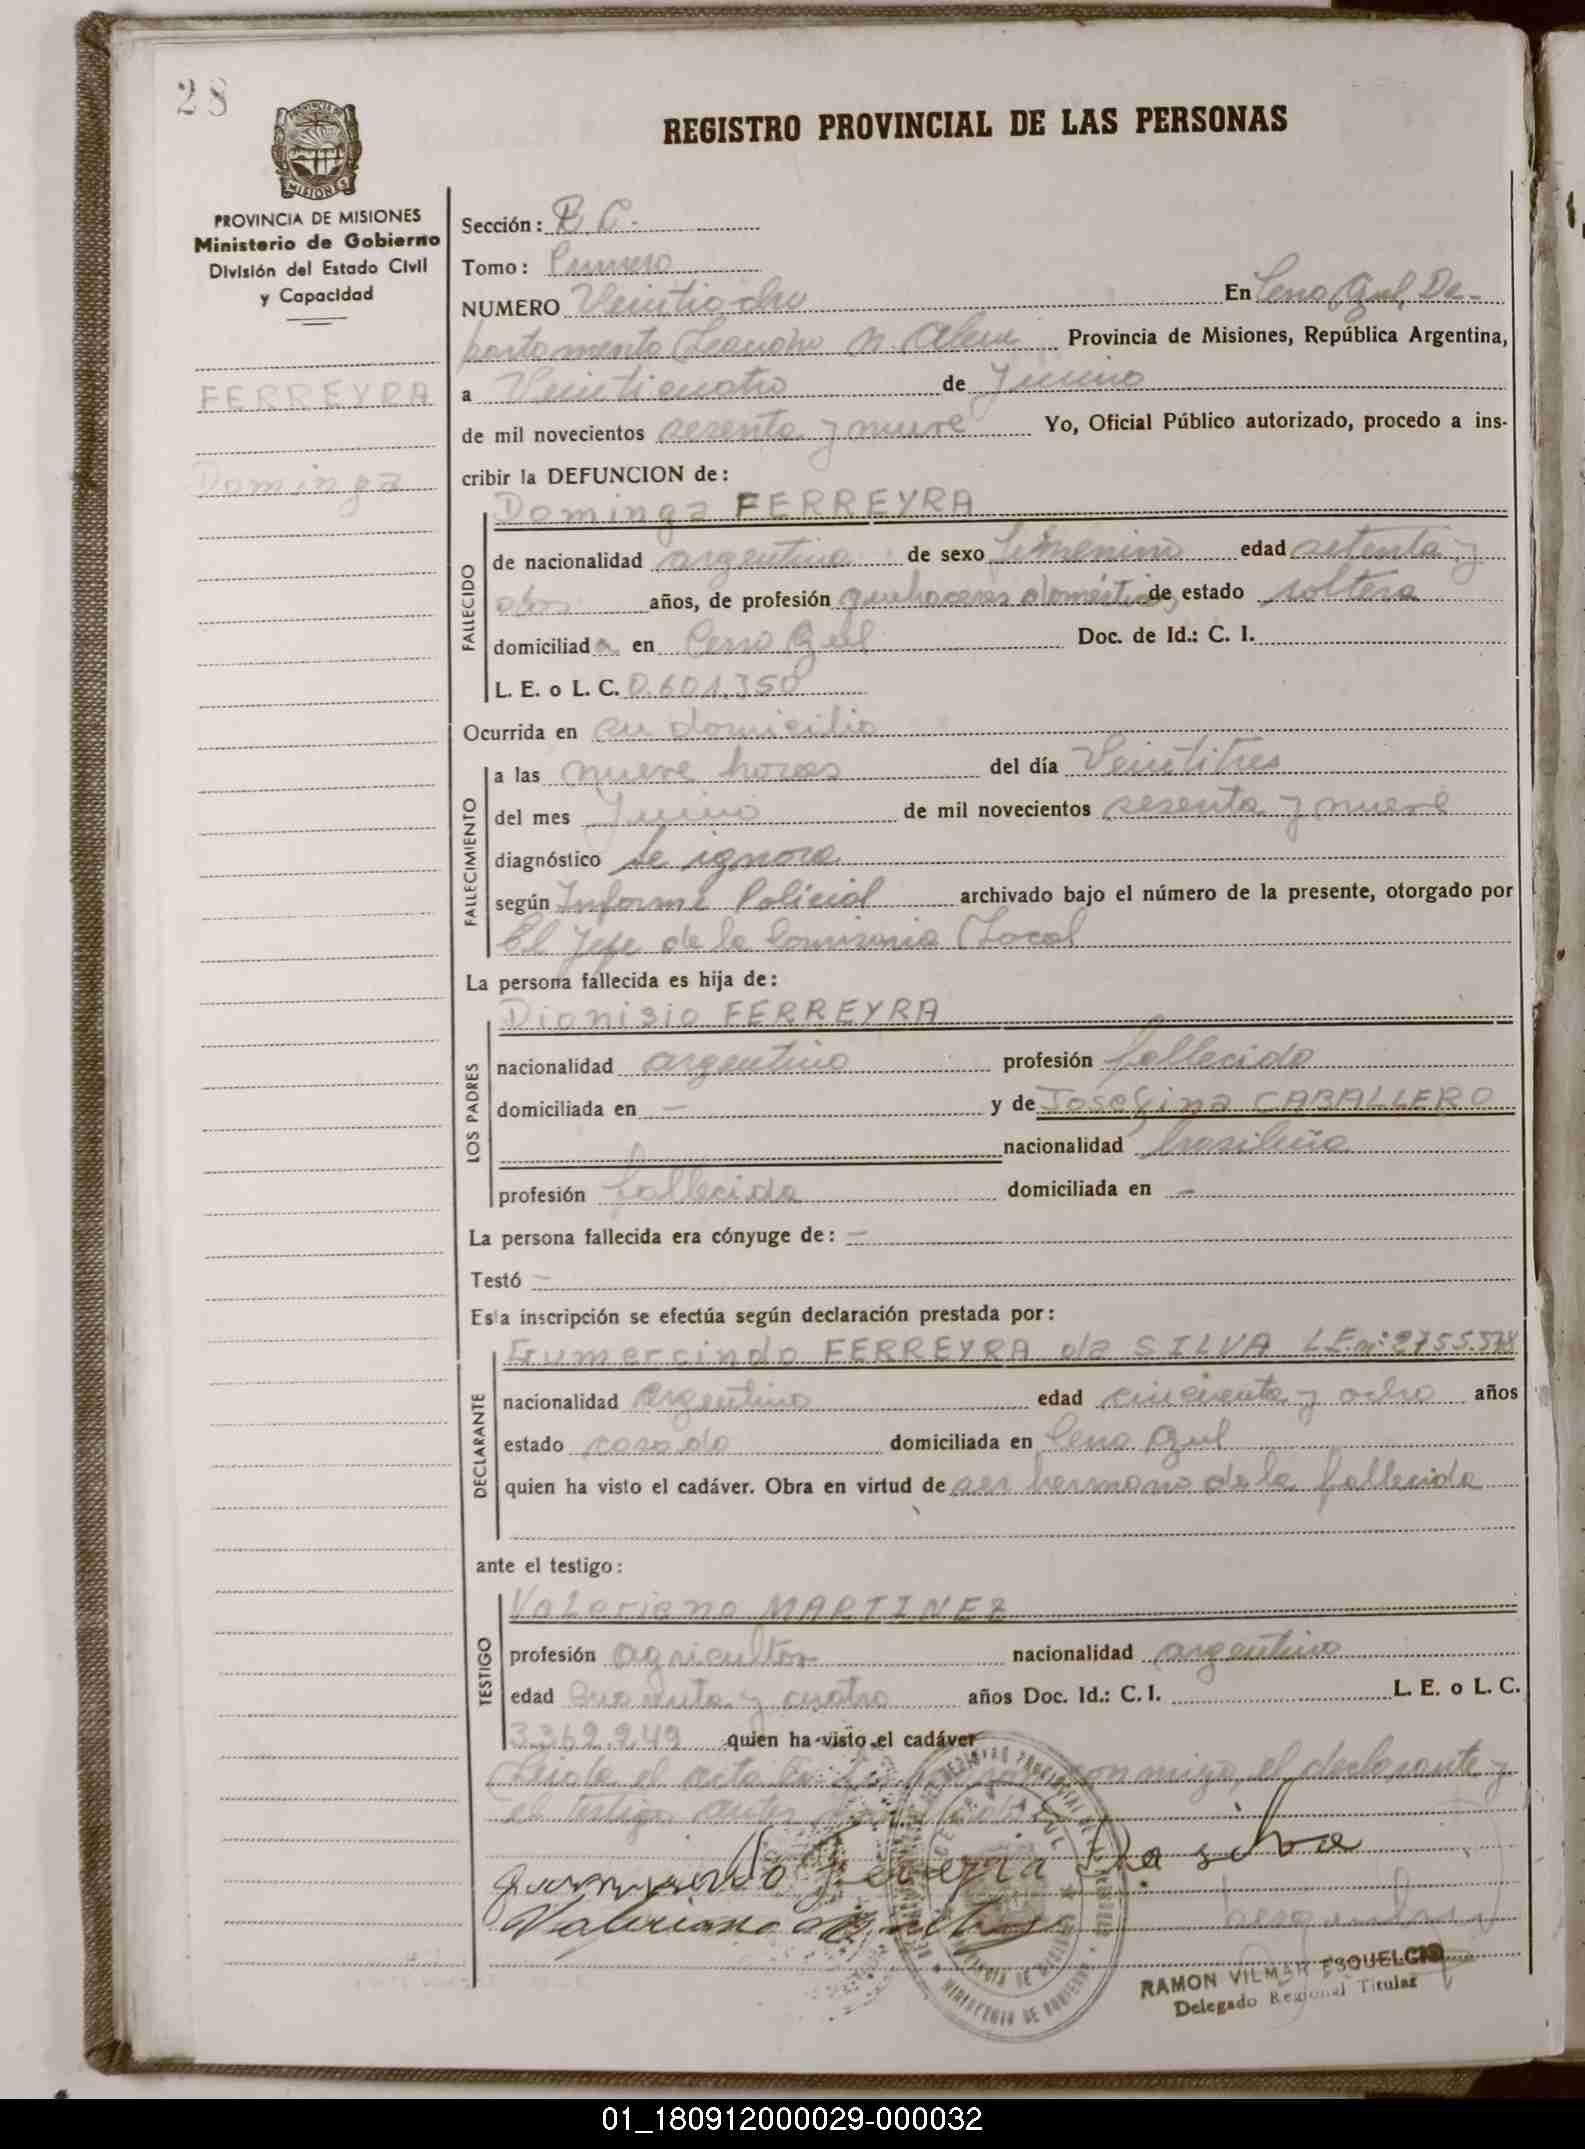 28
PROVINCIA DE
MISIONES
REGISTRO PROVINCIAL DE LAS PERSONAS
PROVINCIA DE MISIONES
Ministerio de Gobierno
División del Estado Civil
y Capacidad
FERREYRA
Dominga
Sección: R. C.
Tomo: Primero
NUMERO Veintiocho En Cerro Azul, De-
partamento Leandro N. Alem Provincia de Misiones, República Argentina,
a Veinticuatro de Junio
de mil novecientos sesenta y nueve Yo, Oficial Público autorizado, procedo a ins-
cribir la DEFUNCION de:
Dominga FERREYRA
FALLECIDO
de nacionalidad argentina de sexo femenino edad setenta y
dos años, de profesión quehaceres domésticos, de estado soltera
domiciliada en Cerro Azul Doc. de Id.: C. I.
L. E. o L. C. 0.601.350
Ocurrida en su domicilio
FALLECIMIENTO
a las nueve horas del día Veintitres
del mes Junio de mil novecientos sesenta y nueve
diagnóstico Se ignora
según Informe Policial archivado bajo el número de la presente, otorgado por
El Jefe de la Comisaria Local
La persona fallecida es hija de:
Dionisio FERREYRA
LOS PADRES
nacionalidad argentino profesión fallecido
domiciliada en — y de Josefina CABALLERO
nacionalidad brasileña
profesión fallecida domiciliada en —
La persona fallecida era cónyuge de: —
Testó —
Esta inscripción se efectúa según declaración prestada por:
Gumercindo FERREYRA da SILVA L.E.nº 2755.578
DECLARANTE
nacionalidad argentino edad cincuenta y ocho años
estado casado domiciliada en Cerro Azul
quien ha visto el cadáver. Obra en virtud de ser hermano de la fallecida
ante el testigo:
Valeriano MARTINEZ
TESTIGO
profesión agricultor nacionalidad argentino
edad cuarenta y cuatro años Doc. Id.: C. I. L. E. o L. C.
3.369.949 quien ha visto el cadáver
Leida el acta la conmigo, el declarante y
el testigo antes
Ferreyra Da silva
Valeriano
RAMON VILMAR ESQUELCIO
Delegado Regional Titular
01_180912000029-000032